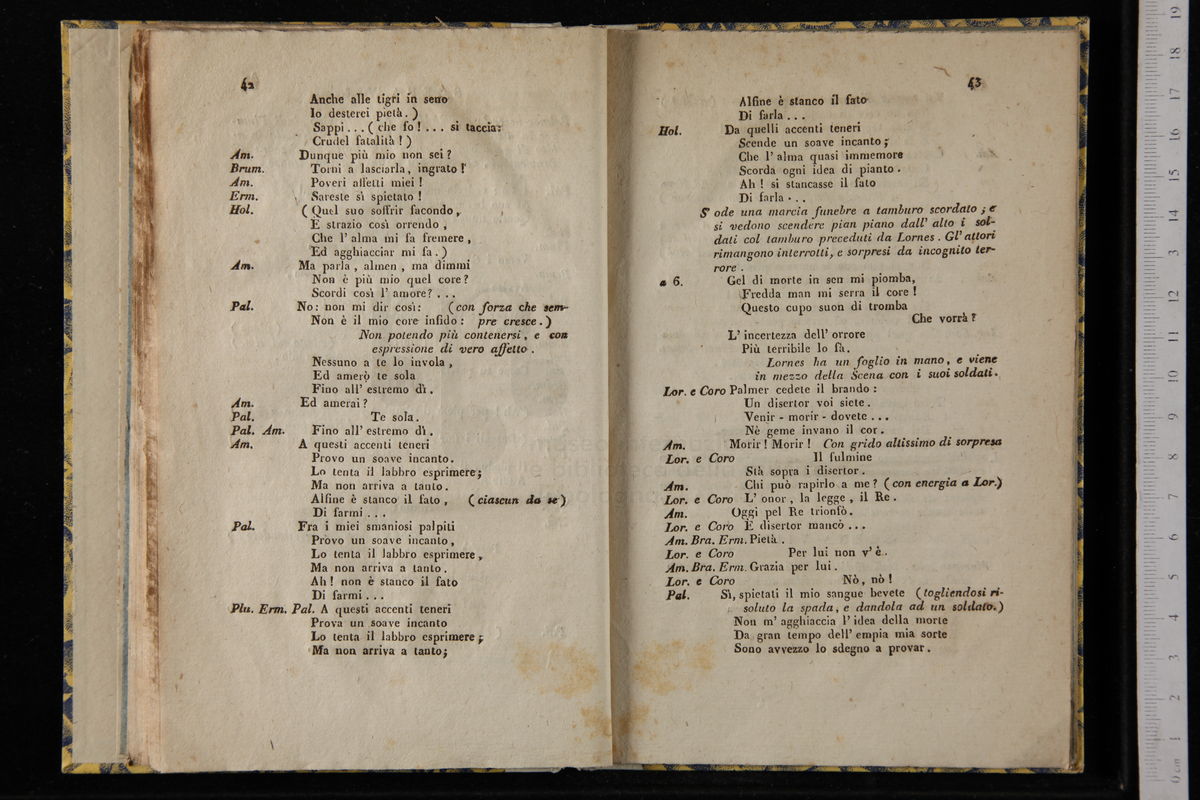 42
Anche alle tigri in seno
Io desterei pietà. )
Sappi... ( che fo ! ... si taccia:
Crudel fatalità ! )
Am. Dunque più mio non sei ?
Brum. Torni a lasciarla, ingrato !
Am. Poveri affetti miei !
Erm. Sareste sì spietato !
Hol. ( Quel suo soffrir facondo,
E strazio così orrendo ,
Che l' alma mi fa fremere ,
Ed agghiacciar mi fa. )
Am. Ma parla , almen , ma dimmi
Non è più mio quel core ?
Scordi così l' amore ? ...
Pal. No : non mi dir così: ( con forza che sem-
Non è il mio core infido : pre cresce. )
Non potendo più contenersi, e con
espressione di vero affetto .
Nessuno a te lo invola ,
Ed amerò te sola
Fino all' estremo dì .
Am. Ed amerai ?
Pal. Te sola .
Pal. Am. Fino all' estremo dì .
Am. A questi accenti teneri
Provo un soave incanto .
Lo tenta il labbro esprimere ;
Ma non arriva a tanto .
Alfine è stanco il fato , ( ciascun da se )
Di farmi ...
Pal. Fra i miei smaniosi palpiti
Provo un soave incanto ,
Lo tenta il labbro esprimere ,
Ma non arriva a tanto .
Ah ! non è stanco il fato
Di farmi ...
Plu. Erm. Pal. A questi accenti teneri
Prova un soave incanto
Lo tenta il labbro esprimere ;
Ma non arriva a tanto ;
43
Alfine è stanco il fato
Di farla ...
Hol. Da quelli accenti teneri
Scende un soave incanto ;
Che l' alma quasi immemore
Scorda ogni idea di pianto .
Ah ! si stancasse il fato
Di farla ...
S' ode una marcia funebre a tamburo scordato ; e
si vedono scendere pian piano dall' alto i sol-
dati col tamburo preceduti da Lornes . Gl' attori
rimangono interrotti, e sorpresi da incognito ter-
rore .
a 6. Gel di morte in sen mi piomba,
Fredda man mi serra il core !
Questo cupo suon di tromba
Che vorrà ?
L' incertezza dell' orrore
Più terribile lo fà.
Lornes ha un foglio in mano, e viene
in mezzo della Scena con i suoi soldati.
Lor. e Coro Palmer cedete il brando :
Un disertor voi siete .
Venir - morir - dovete ...
Nè geme invano il cor .
Am. Morir ! Morir ! Con grido altissimo di sorpresa
Lor. e Coro Il fulmine
Stà sopra i disertor .
Am. Chi può rapirlo a me ? ( con energia a Lor.)
Lor. e Coro L' onor , la legge , il Re .
Am. Oggi pel Re trionfò .
Lor. e Coro E disertor mancò ...
Am. Bra. Erm. Pietà .
Lor. e Coro Per lui non v' è .
Am. Bra. Erm. Grazia per lui .
Lor. e Coro Nò, nò !
Pal. Sì, spietati il mio sangue bevete ( togliendosi ri-
soluto la spada, e dandola ad un soldato.)
Non m' agghiaccia l' idea della morte
Da gran tempo dell' empia mia sorte
Sono avvezzo lo sdegno a provar .